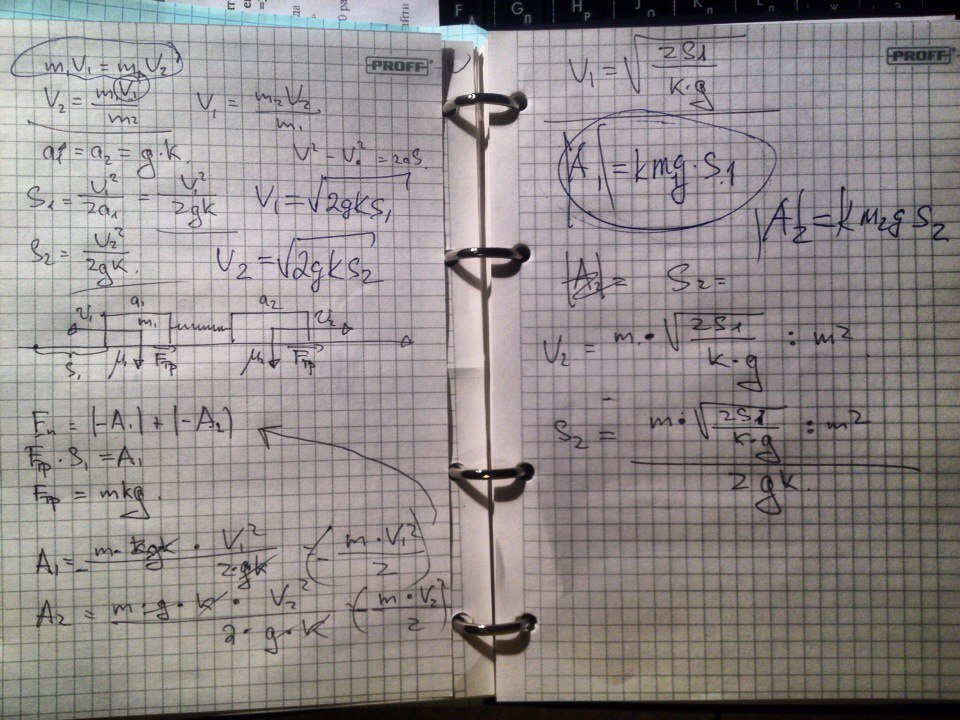 m₁V₁ = m₂V₂
PROFF
V₂ = m₁V₁ / m₂
V₁ = m₂V₂ / m₁
a₁ = a₂ = g·k
V² − V₀² = 2aS
S₁ = V₁² / 2a₁ = V₁² / 2gk
V₁ = √2gkS₁
S₂ = V₂² / 2gk
V₂ = √2gkS₂
a₁
a₂
V₁
m₁
V₂
S₁
Fтр
Fтр
Eп = |−A₁| + |−A₂|
Fтр · S₁ = A₁
Fтр = mkg
A₁ = − m·kgk · V₁² / 2·gk (− m·V₁² / 2)
A₂ = m·g·k · V₂² / 2·g·k (− m·V₂² / 2)
F
G
П
PROFF
V₁ = √(2S1 / k·g)
|A₁| = km₁g·S₁
|A₂| = km₂gS₂
|A₂| =
S₂ =
V₂ = m·√(2S1 / k·g) : m2
S₂ = m·√(2S1 / k·g) : m2 / 2gk